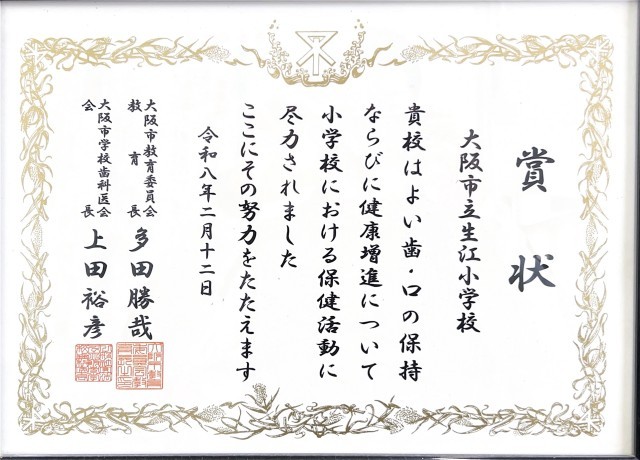 賞状
大阪市立生江小学校
貴校はよい歯・口の保持
ならびに健康増進について
小学校における保健活動に
尽力されました
ここにその努力をたたえます
令和八年二月十二日
大阪市教育委員会
教育長 多田勝哉
大阪市学校歯科医会
会長 上田裕彦